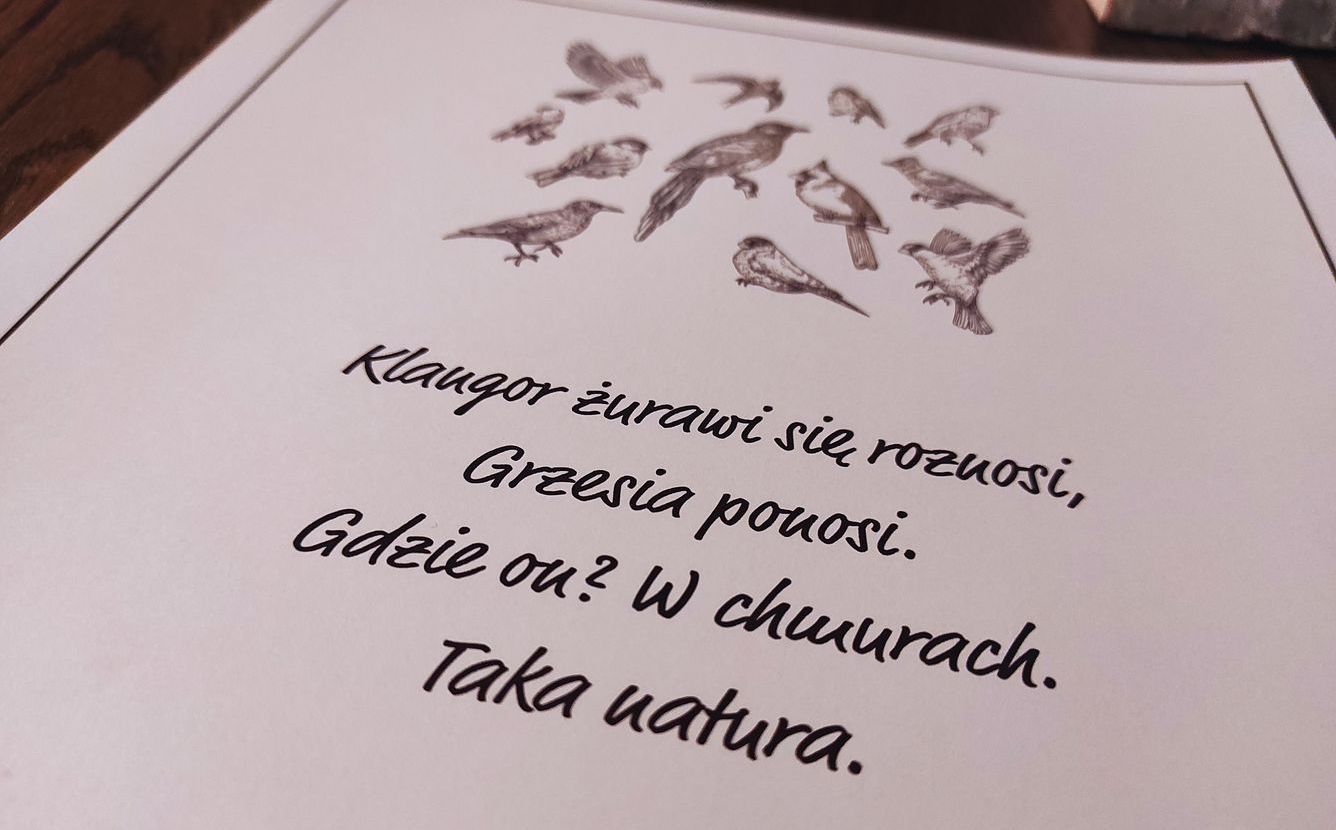 Klangor żurawi się roznosi,
Grzesia ponosi.
Gdzie on? W chmurach.
Taka natura.